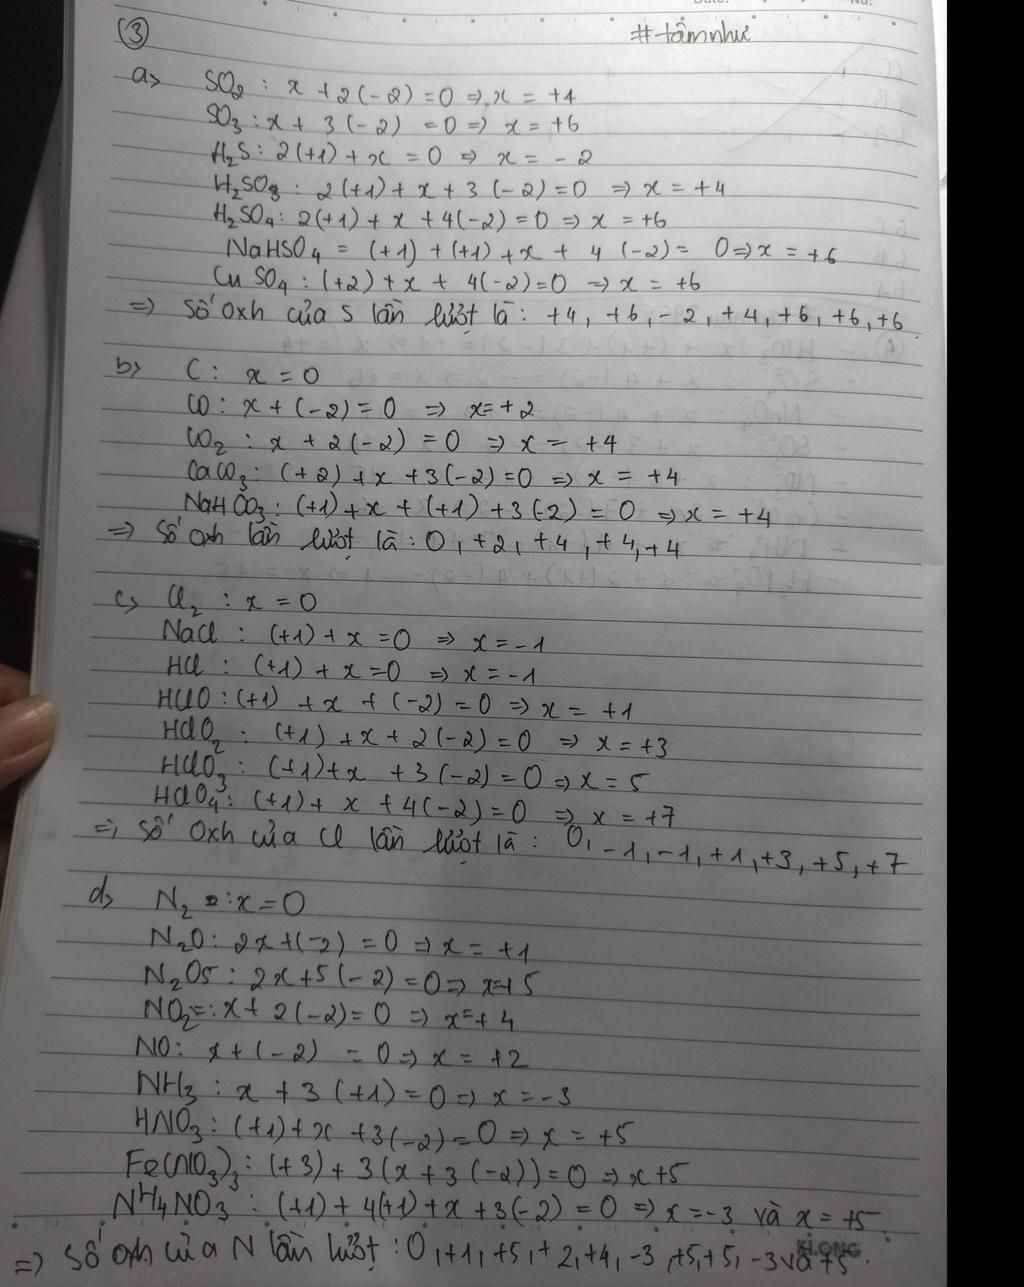 ③ #tâmnhư
a> SO2 : x + 2(-2) = 0 => x = +4
SO3 : x + 3(-2) = 0 => x = +6
H2S : 2(+1) + x = 0 => x = -2
H2SO3 : 2(+1) + x + 3(-2) = 0 => x = +4
H2SO4 : 2(+1) + x + 4(-2) = 0 => x = +6
NaHSO4 = (+1) + (+1) + x + 4(-2) = 0 => x = +6
CuSO4 : (+2) + x + 4(-2) = 0 => x = +6
=> Số oxh của S lần lượt là : +4, +6, -2, +4, +6, +6, +6
b> C : x = 0
CO : x + (-2) = 0 => x = +2
CO2 : x + 2(-2) = 0 => x = +4
CaCO3 : (+2) + x + 3(-2) = 0 => x = +4
NaHCO3 : (+1) + x + (+1) + 3(-2) = 0 => x = +4
=> Số oxh lần lượt là : 0, +2, +4, +4, +4
c> Cl2 : x = 0
NaCl : (+1) + x = 0 => x = -1
HCl : (+1) + x = 0 => x = -1
HClO : (+1) + x + (-2) = 0 => x = +1
HClO2 : (+1) + x + 2(-2) = 0 => x = +3
HClO3 : (+1) + x + 3(-2) = 0 => x = 5
HClO4 : (+1) + x + 4(-2) = 0 => x = +7
=> Số oxh của Cl lần lượt là : 0, -1, -1, +1, +3, +5, +7
d> N2 : x = 0
N2O : 2x + (-2) = 0 => x = +1
N2O5 : 2x + 5(-2) = 0 => x = +5
NO2 = : x + 2(-2) = 0 => x = +4
NO : x + (-2) = 0 => x = +2
NH3 : x + 3(+1) = 0 => x = -3
HNO3 : (+1) + x + 3(-2) = 0 => x = +5
Fe(NO3)3 : (+3) + 3(x + 3(-2)) = 0 => x +5
NH4NO3 : (+1) + 4(+1) + x + 3(-2) = 0 => x = -3 và x = +5
=> Số oxh của N lần lượt : 0, +1, +5, +2, +4, -3, +5, +5, -3 và +5.
KLONG